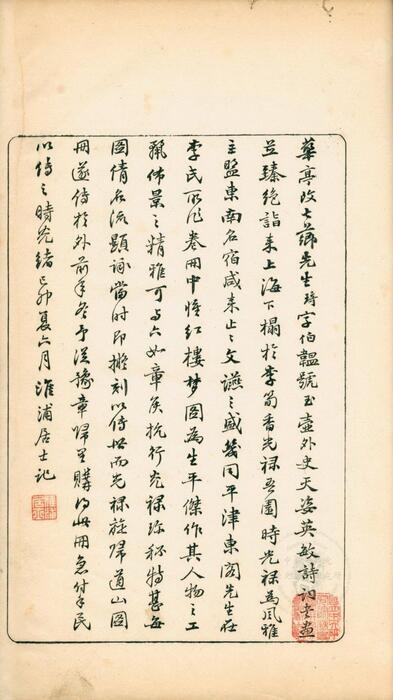 華亭改七薌先生琦字伯韞號玉壺外史天姿英敏詩詞書畫
並臻絕詣來上海下榻於李筍香光祿吾園時光祿為風雅
主盟東南名宿咸來止止文讌之盛幾同平津東閣先生在
李氏所作卷冊中惟紅樓夢圖為生平傑作其人物之工
麗佈景之精雅可與六如章侯抗行光祿珍秘特甚每
圖倩名流題詠當時即擬刻以傳世而光祿旋歸道山圖
冊遂傳於外前年冬予從豫章歸里購得此冊急付手民
以傳之時光緒己卯夏六月淮浦居士記